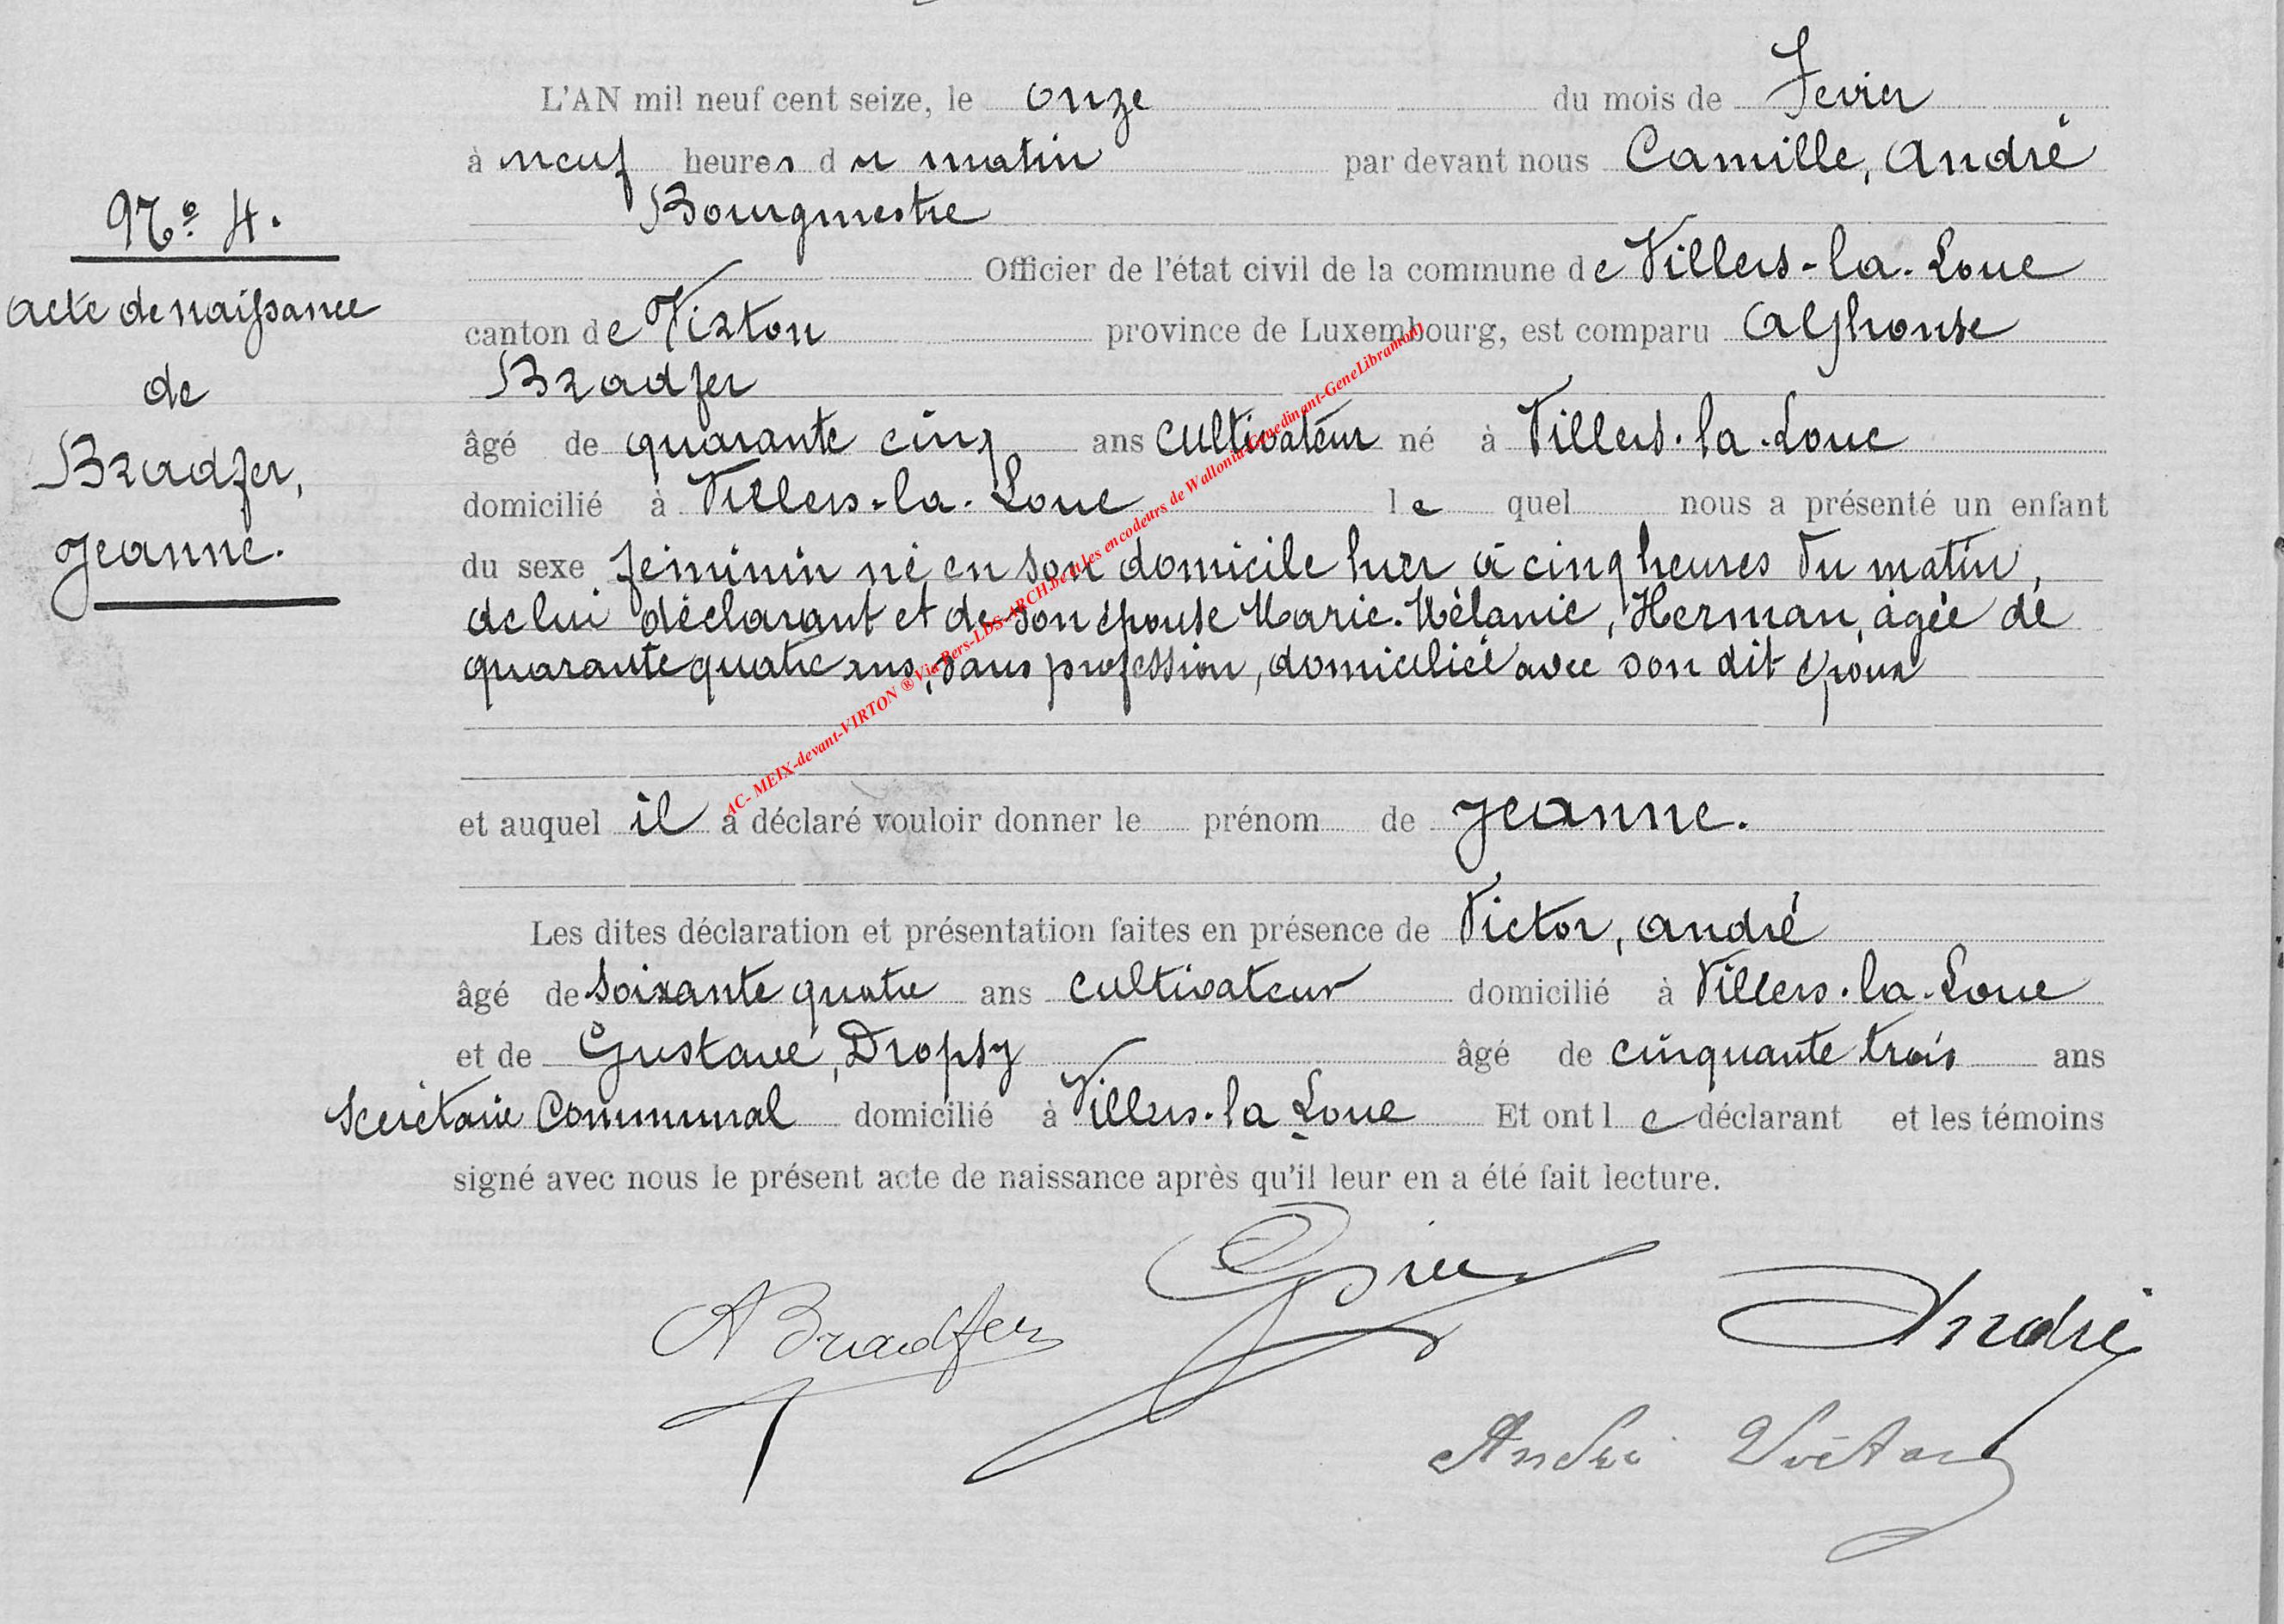 L'AN mil neuf cent seize, le onze du mois de Fevrier
à neuf heures du matin par devant nous Camille, André
Bourgmestre
Officier de l'état civil de la commune de Villers-la-Loue
canton de Virton province de Luxembourg, est comparu Alphonse
Bradfer
âgé de quarante cinq ans cultivateur né à Villers-la-Loue
domicilié à Villers-la-Loue le quel nous a présenté un enfant
du sexe féminin né en son domicile hier à cinq heures du matin,
de lui déclarant et de son épouse Marie-Mélanie, Herman, âgée de
quarante quatre ans, sans profession, domiciliée avec son dit époux
et auquel il a déclaré vouloir donner le prénom de Jeanne.
Les dites déclaration et présentation faites en présence de Victor, André
âgé de soixante quatre ans cultivateur domicilié à Villers-la-Loue
et de Gustave, Dropsy âgé de cinquante trois ans
Secrétaire Communal domicilié à Villers-la Loue Et ont le déclarant et les témoins
signé avec nous le présent acte de naissance après qu'il leur en a été fait lecture.
N° 4.
Acte de naissance
de
Bradfer,
Jeanne.
A Bradfer
André
André Victor
AC- MEIX-devant-VIRTON ® Via Bers-LDS-ARCH.be et les encodeurs de Wallonia-Genedinant-GeneLibramont